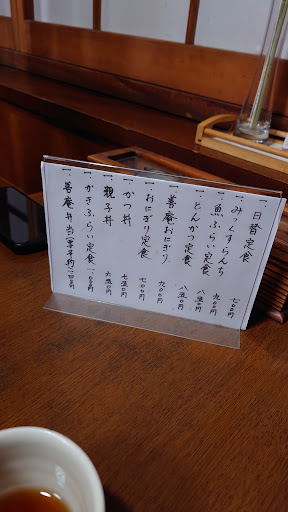 一、日替定食 七〇〇円
一、みっくすらんち 九〇〇円
一、魚ふらい定食 八五〇円
一、とんかつ定食 八五〇円
一、善庵おにぎり 九〇〇円
一、おにぎり定食 七〇〇円
一、かつ丼 七五〇円
一、親子丼 六五〇円
一、かきふらい定食 一、〇〇〇円
一、善庵弁当(要予約)